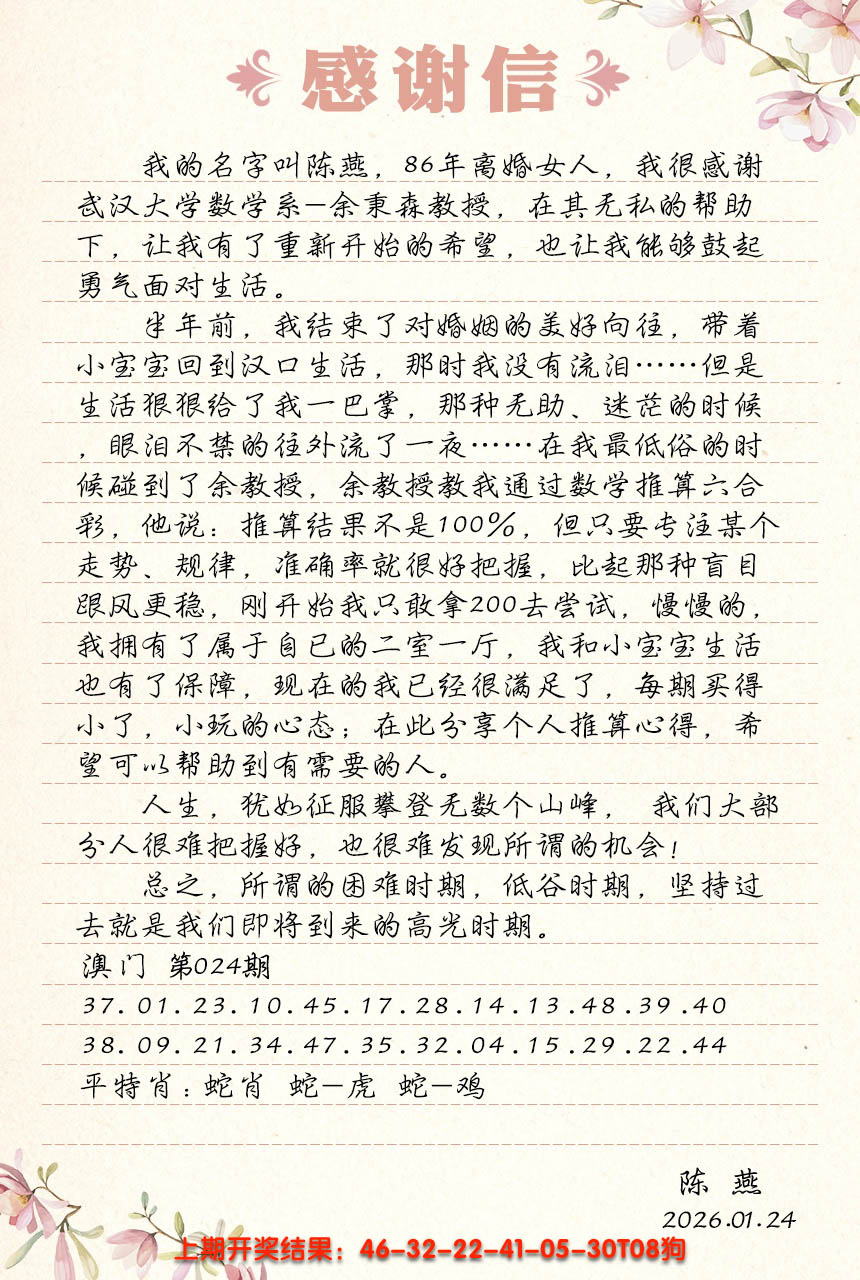 感谢信
我的名字叫陈燕，86年离婚女人，我很感谢
武汉大学数学系—余秉森教授，在其无私的帮助
下，让我有了重新开始的希望，也让我能够鼓起
勇气面对生活。
半年前，我结束了对婚姻的美好向往，带着
小宝宝回到汉口生活，那时我没有流泪……但是
生活狠狠给了我一巴掌，那种无助、迷茫的时候
，眼泪不禁的往外流了一夜……在我最低俗的时
候碰到了余教授，余教授教我通过数学推算六合
彩，他说：推算结果不是100%，但只要专注某个
走势、规律，准确率就很好把握，比起那种盲目
跟风更稳，刚开始我只敢拿200去尝试，慢慢的，
我拥有了属于自已的二室一厅，我和小宝宝生活
也有了保障，现在的我已经很满足了，每期买得
小了，小玩的心态；在此分享个人推算心得，希
望可以帮助到有需要的人。
人生，犹如征服攀登无数个山峰， 我们大部
分人很难把握好，也很难发现所谓的机会！
总之，所谓的困难时期，低谷时期，坚持过
去就是我们即将到来的高光时期。
澳门 第024期
37.01.23.10.45.17.28.14.13.48.39.40
38.09.21.34.47.35.32.04.15.29.22.44
平特肖：蛇肖 蛇—虎 蛇—鸡
陈 燕
2026.01.24
上期开奖结果：46-32-22-41-05-30T08狗